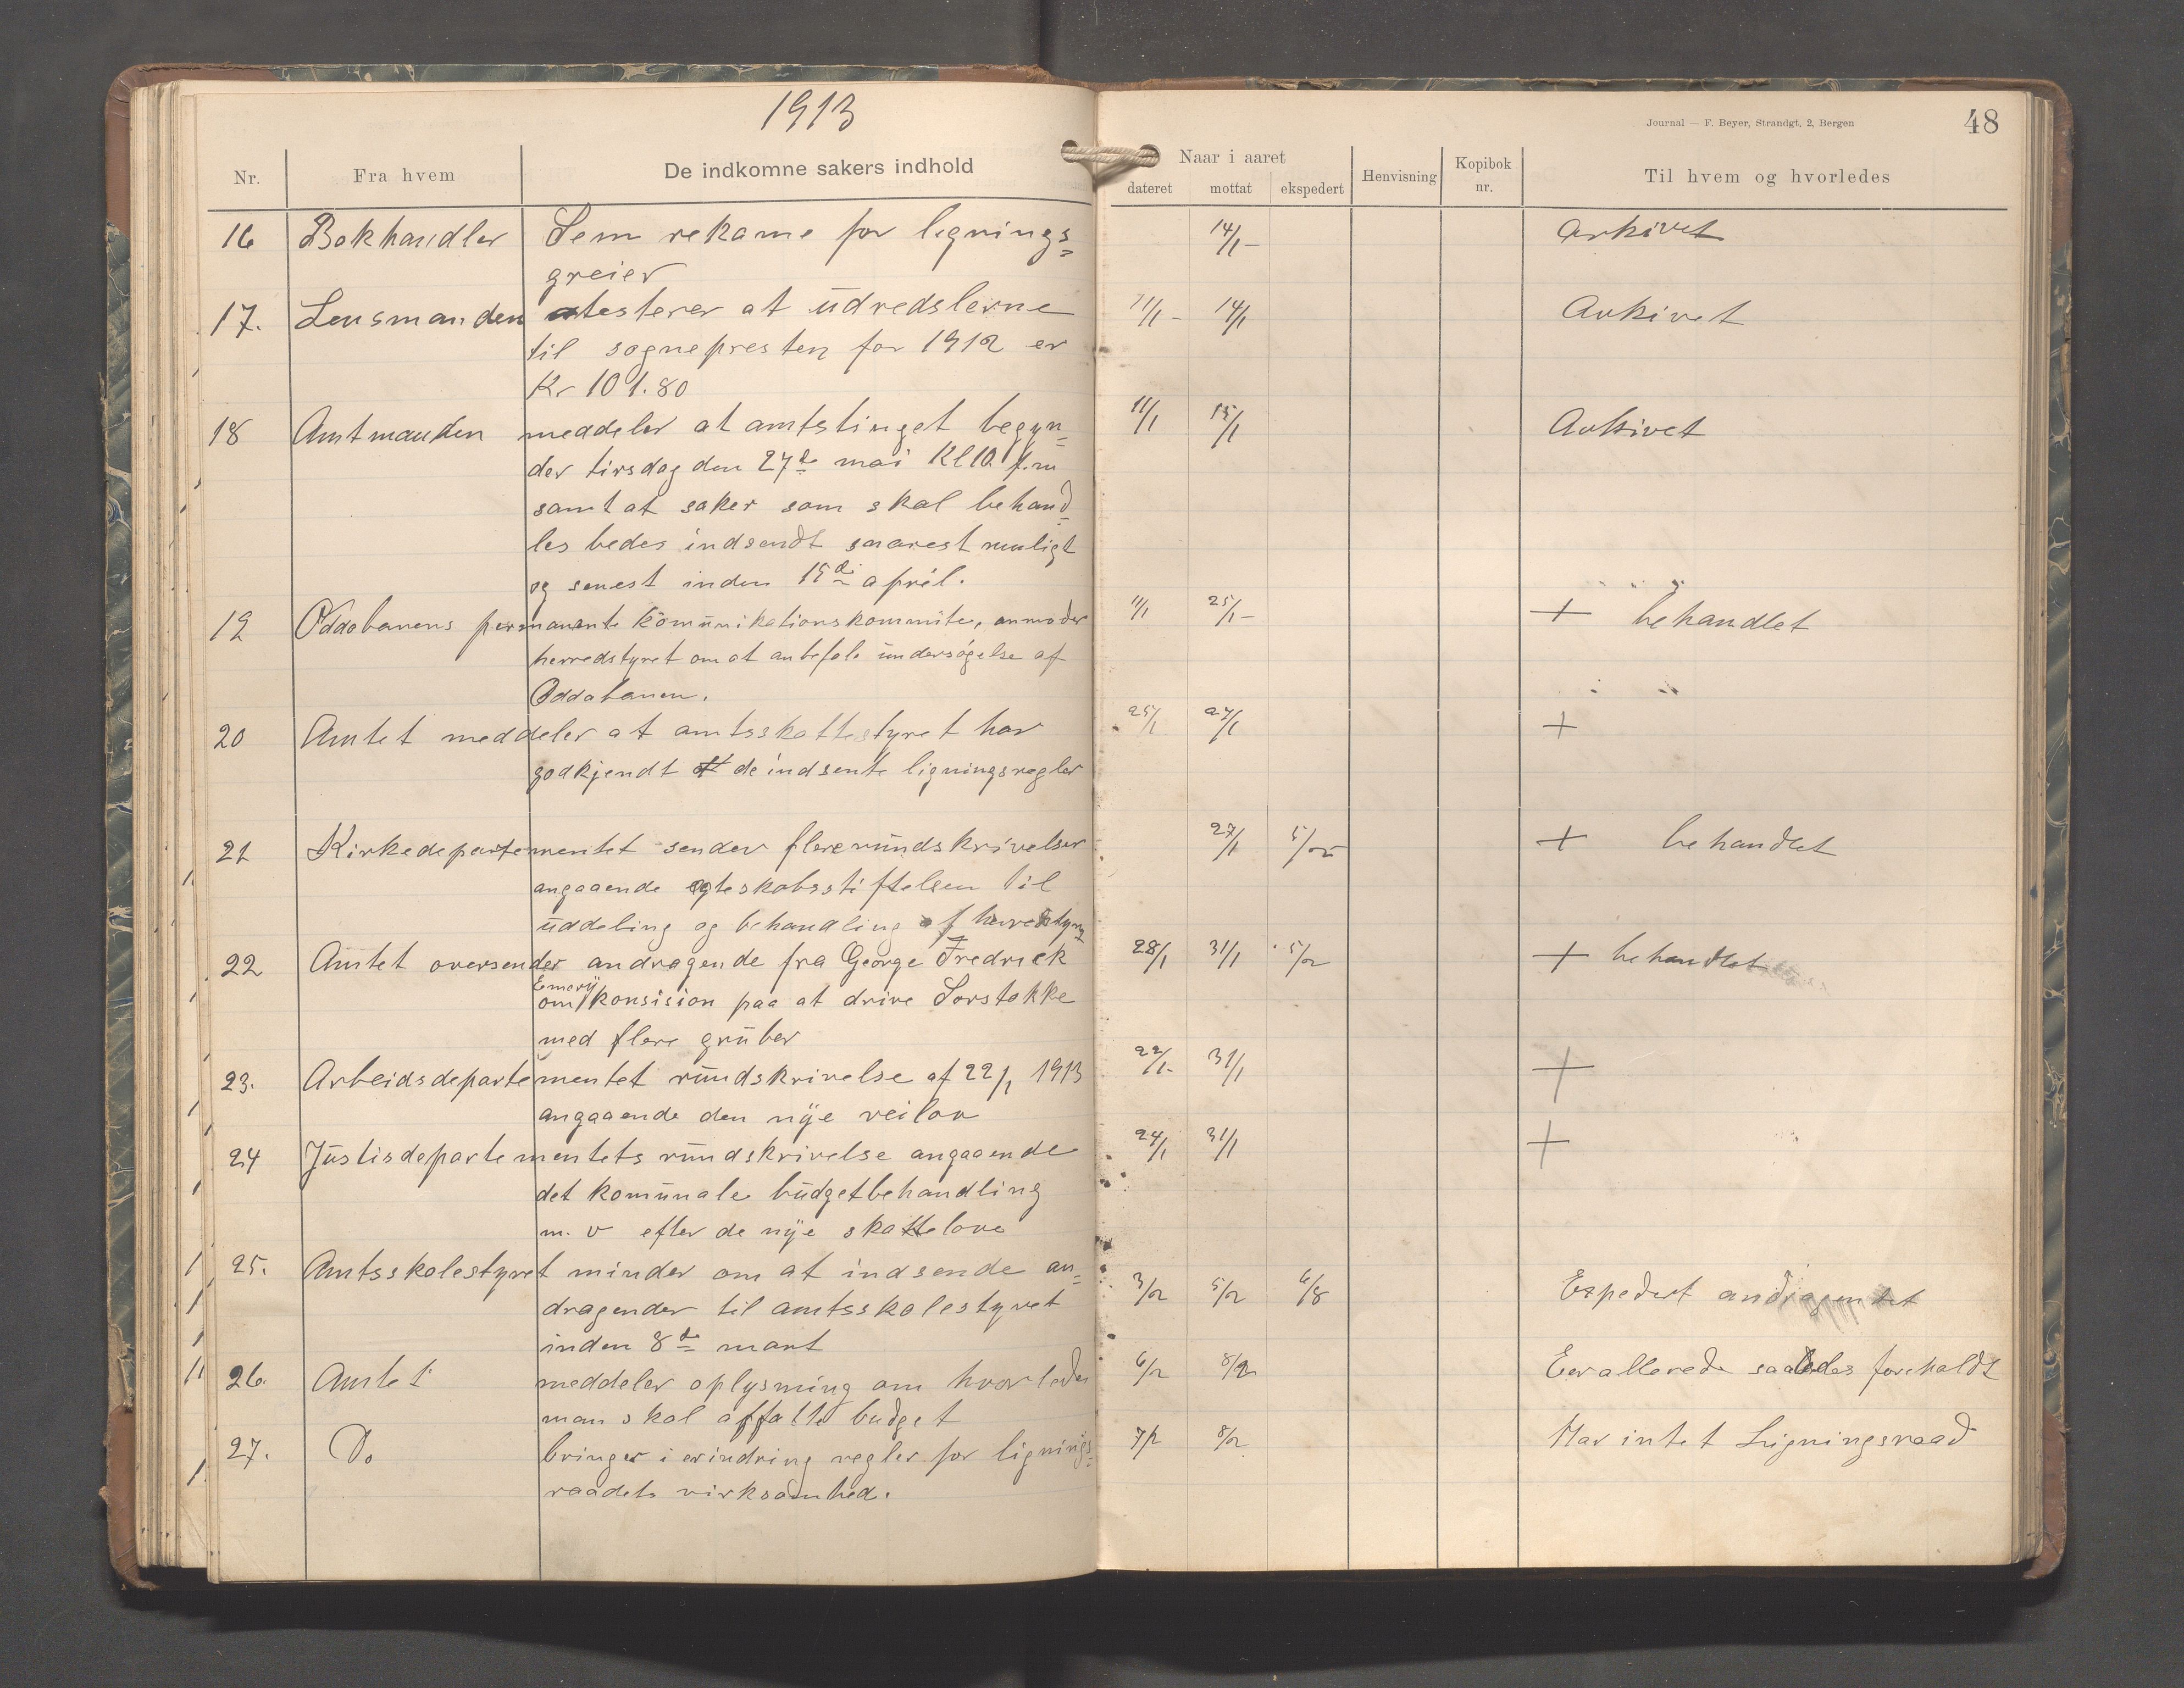 1913
Journal — F. Beyer, Strandgt, 2, Bergen
48
Nr. Fra hvem De indkomne sakers indhold
Naar i aaret
dateret mottat ekspedert Henvisning Kopibok nr. Til hvem og hvorledes
16 Bokhandler Sem rekame for lignings= 14/1- Arkivet
greier
17. Lensmanden atesterer at udredslerne 11/1- 14/1 Arkivet
til sognepresten for 1912 er
Kr 101.80
18 Amtmanden meddeler at amtstinget begyn= 11/1 15/1 Arkivet
der tirsdag den 27de mai Kl 10 f.m
samt at saker som skal behand=
les bedes indsendt snarest muligt
og senest inden 15de april.
19 Oddabanens permanente komunikationskommite, anmoder 11/1 25/1- + behandlet
herredstyret om at anbefale undersøgelse af
Oddabanen.
20 Amtet meddeler at amtsskattestyret har 25/1 27/1 +
godkjendt de indsente ligningsregler
21 Kirkedepartementet sender flere rundskrivelser 27/1 5/2 + behandlet
angaaende egteskabsstiftelsen til
uddeling og behandling af herredstyre
22 Amtet oversender andragende fra George Fredrick 28/1 31/1 5/2 + behandlet
Emerÿ
om konsision paa at drive Sorstokke
med flere gruber
23. Arbeidsdepartementet rundskrivelse af 22/1 1913 22/1- 31/1 +
angaaende den nÿe veilov
24 Justisdepartementets rundskrivelse angaaende 24/1 31/1 +
det komunale budgetbehandling
m. v efter de nÿe skattelove
25. Amtsskolestyret minder om at indsende an= 3/2 5/2 6/8 Expedert andragendet
dragender til amtsskolestyret
inden 8de mart
26. Amtet meddeler oplysning om hvorledes 6/2 8/2 Er allerede saaledes forholdt
man skal affatte budget
27. Do bringer i erindring regler for lignings= 7/2 8/2 Har intet Ligningsraad
raadets virksomhed.